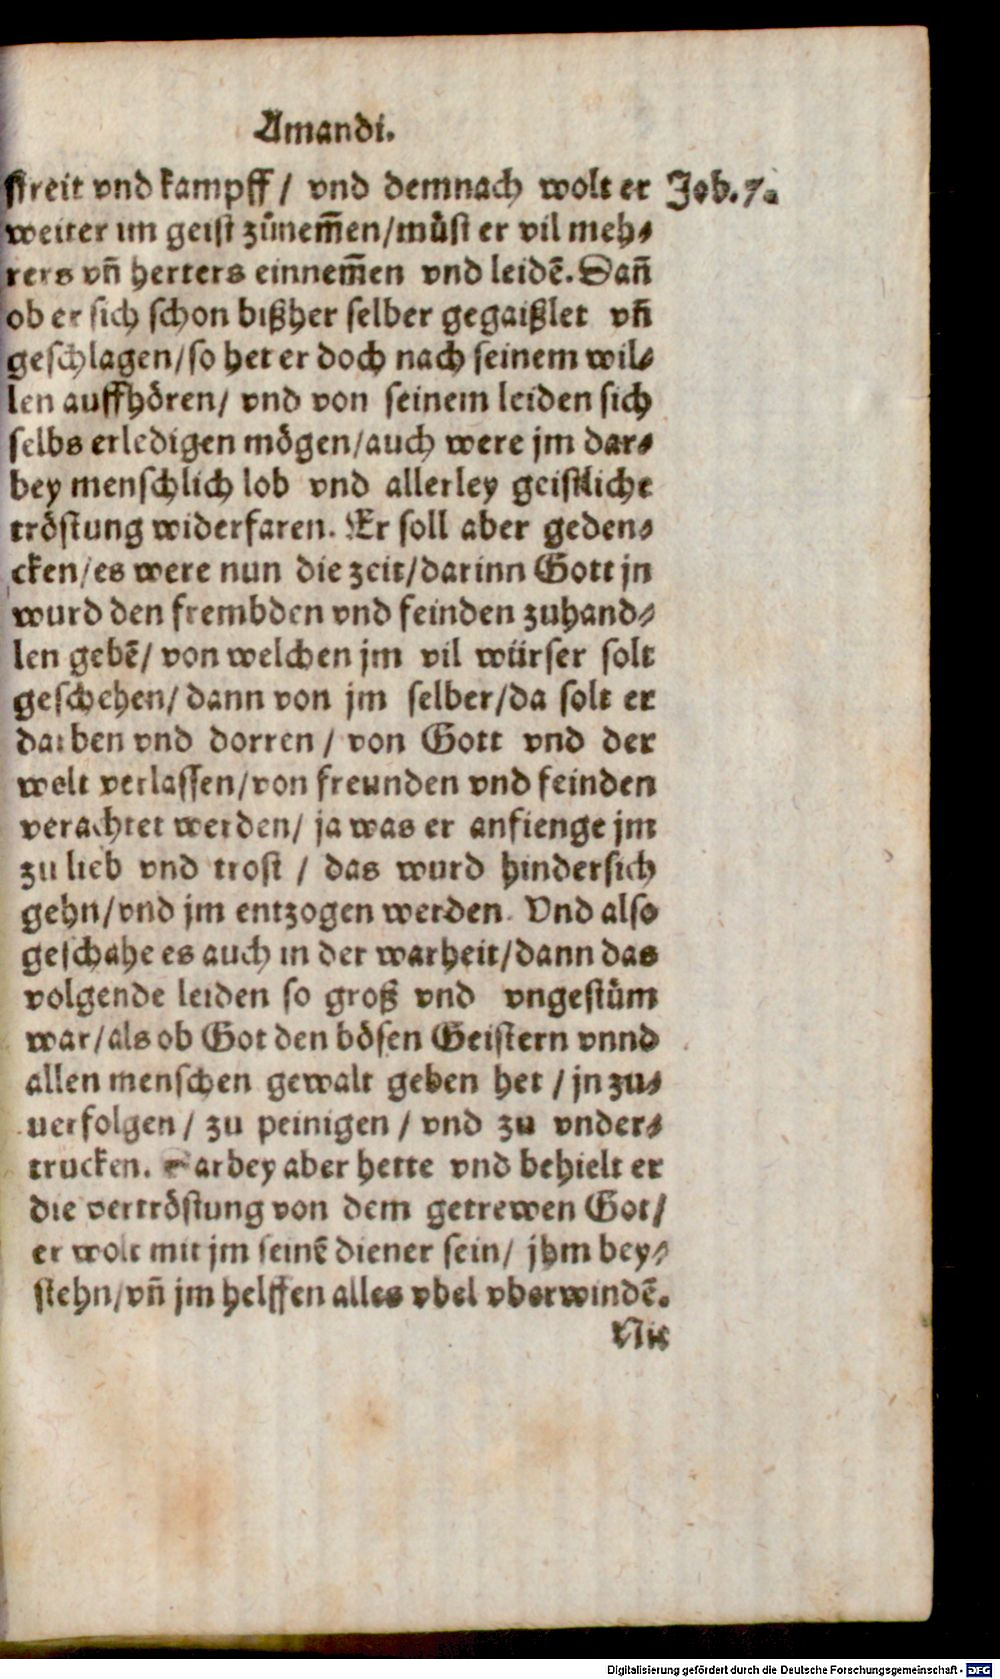 Amandi.
streit vnd kampff / vnd demnach wolt er Job. 7.
weiter im geist zůnem̃en/můst er vil meh⸗
rers vñ herters einnem̃en vnd leidẽ. Dañ
ob er sich schon bißher selber gegaißlet vñ
geschlagen/so het er doch nach seinem wil⸗
len auffhören/ vnd von seinem leiden sich
selbs erledigen mögen/auch were jm dar⸗
bey menschlich lob vnd allerley geistliche
tröstung widerfaren. Er soll aber geden⸗
cken/es were nun die zeit/darinn Gott jn
wurd den frembden vnd feinden zuhand⸗
len gebẽ/ von welchen jm vil würser solt
geschehen/ dann von jm selber/da solt er
darben vnd dorren / von Gott vnd der
welt verlassen/von freunden vnd feinden
verachtet werden/ ja was er anfienge jm
zu lieb vnd trost / das wurd hindersich
gehn/vnd jm entzogen werden. Vnd also
geschahe es auch in der warheit/dann das
volgende leiden so groß vnd vngestům
war/als ob Got den bösen Geistern vnnd
allen menschen gewalt geben het / jn zu⸗
uerfolgen / zu peinigen / vnd zu vnder⸗
trucken. Darbey aber hette vnd behielt er
die vertröstung von dem getrewen Got/
er wolt mit jm seinẽ diener sein/ jhm bey⸗
stehn/vñ jm helffen alles vbel vberwindẽ.
Nit
Digitalisierung gefördert durch die Deutsche Forschungsgemeinschaft - DFG